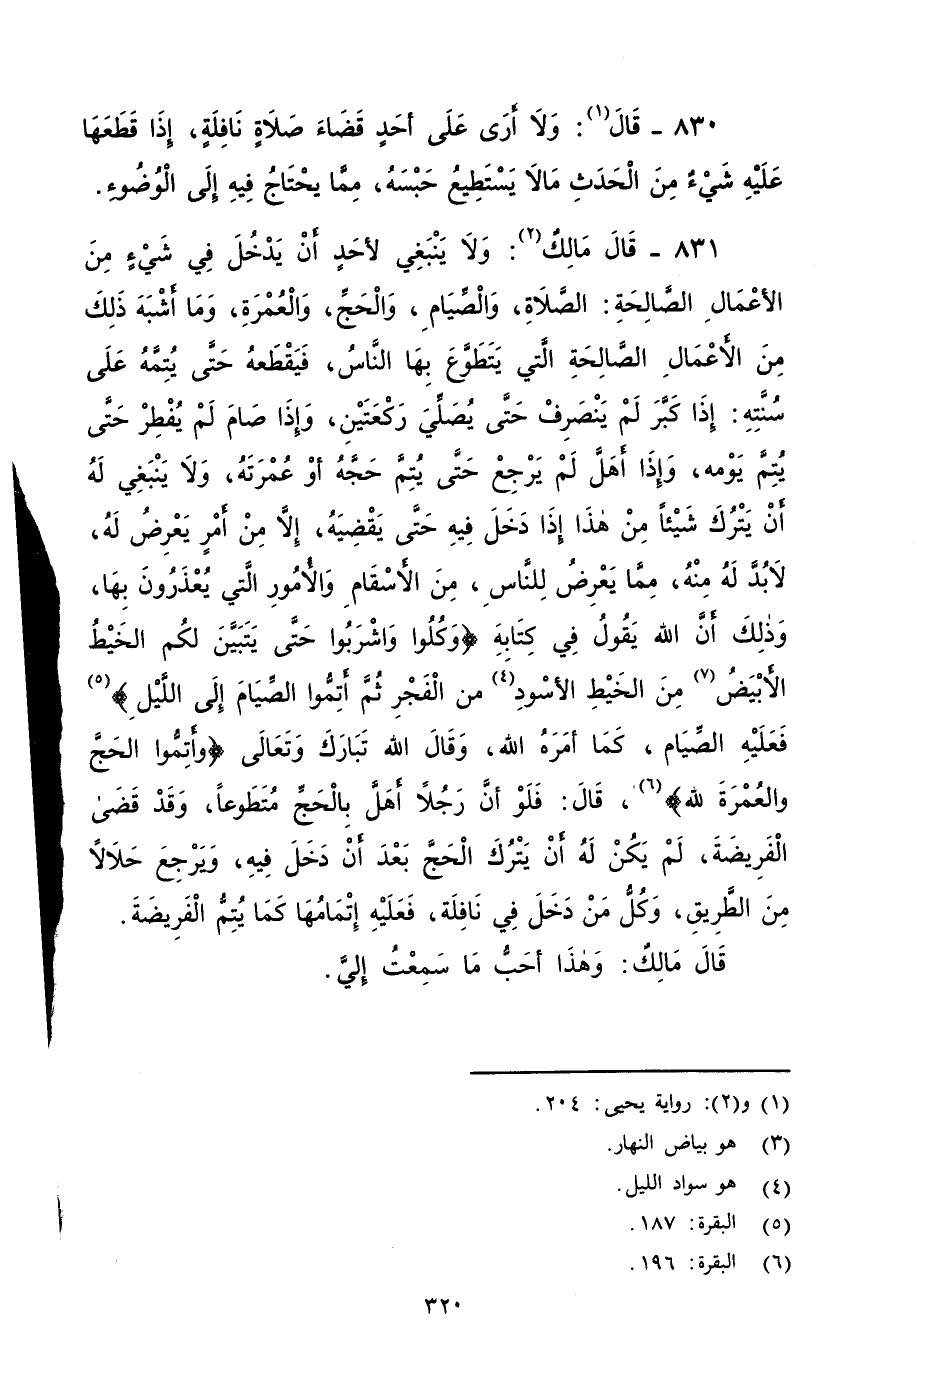 ٨٣٠ ـ قَالَ(١): وَلَا أَرَى عَلَى أحَدٍ قَضَاءَ صَلَاةٍ نَافِلَةٍ، إِذَا قَطَعَهَا
عَلَيْهِ شَيْءٌ مِنَ الْحَدَثِ مَالَا يَسْتَطِيعُ حَبْسَهُ، مِمَّا يحْتَاجُ فِيهِ إِلَى الْوُضُوءِ.
٨٣١ ـ قَالَ مَالِكٌ(٢): وَلَا يَنْبَغِي لأحَدٍ أَنْ يَدْخُلَ فِي شَيْءٍ مِنَ
الأعْمَالِ الصَّالِحَةِ: الصَّلَاةِ، وَالْصِّيَامِ، وَالْحَجِّ، وَالْعُمْرَةِ، وَمَا أَشْبَهَ ذَلِكَ
مِنَ الأَعْمَالِ الصَّالِحَةِ الَّتي يَتَطَوَّعَ بِهَا النَّاسُ، فَيَقْطَعهُ حَتَّى يُتِمَّهُ عَلَى
سُنَّتِهِ: إِذَا كَبَّرَ لَمْ يَنْصَرِفْ حَتَّى يُصَلِّيَ رَكْعَتَيْنِ، وَإِذَا صَامَ لَمْ يُفْطِرْ حَتَّى
يُتِمَّ يَوْمه، وَإِذَا أَهَلَّ لَمْ يَرْجِعْ حَتَّى يُتِمَّ حَجَّهُ أوْ عُمْرَتَهُ، وَلَا يَنْبَغِي لَهُ
أَنْ يَتْرُكَ شَيْئاً مِنْ هٰذَا إِذَا دَخَلَ فِيهِ حَتَّى يَقْضِيَهُ، إِلَّا مِنْ أَمْرٍ يَعْرِضُ لَهُ،
لَابُدَّ لَهُ مِنْهُ، مِمَّا يَعْرِضُ لِلنَّاسِ، مِنَ الأَسْقَامِ وَالأُمُورِ الَّتي يُعْذَرُونَ بِهَا،
وَذٰلِكَ أَنَّ الله يَقُولُ فِي كِتَابِهِ ﴿وَكُلُوا وَاشْرَبُوا حَتَّى يَتَبَيَّنَ لكُم الخَيْطُ
الأَبْيَضُ(٧) مِنَ الخَيْطِ الأسْودِ(٤) من الْفَجْرِ ثُمَّ أَتِمُّوا الصِّيَامَ إِلَى اللَّيْلِ﴾(٥)
فَعَلَيْهِ الصِّيَام، كَمَا أمَرَهُ الله، وَقَالَ الله تَبَارَكَ وَتَعَالَى ﴿وأَتِمُّوا الحَجَّ
والعُمْرَةَ لله﴾(٦)، قَالَ: فَلَوْ أنَّ رَجُلاً أَهَلَّ بِالْحَجِّ مُتَطَوعاً، وَقَدْ قَضَىٰ
الْفَرِيضَةَ، لَمْ يَكُنْ لَهُ أَنْ يَتْرُكَ الْحَجَّ بَعْدَ أَنْ دَخَلَ فِيهِ، وَيَرْجِعَ حَلَالاً
مِنَ الطَّرِيقِ، وَكُلُّ مَنْ دَخَلَ فِي نَافِلَة، فَعَلَيْهِ إِتْمَامُهَا كَمَا يُتِمُّ الْفَرِيضَةَ.
قَالَ مَالِكٌ: وَهٰذَا أحَبُّ مَا سَمِعْتُ إِليَّ.
(١) و(٢): رواية يحيى: ٢٠٤.
(٣) هو بياض النهار.
(٤) هو سواد الليل.
(٥) البقرة: ١٨٧.
(٦) البقرة: ١٩٦.
٣٢٠